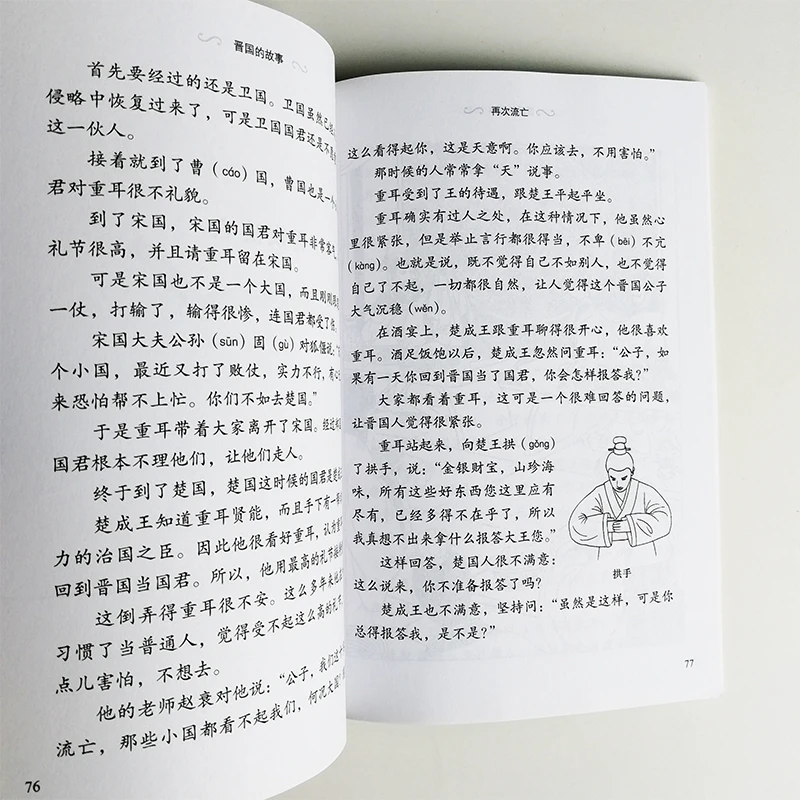 晋国的故事
首先要经过的还是卫国。卫国虽然已
侵略中恢复过来了，可是卫国国君还是不
这一伙人。
接着就到了曹（cáo）国，曹国也是一个
君对重耳很不礼貌。
到了宋国，宋国的国君对重耳非常客气
礼节很高，并且请重耳留在宋国。
可是宋国也不是一个大国，而且刚刚跟
一仗，打输了，输得很惨，连国君都受了伤
宋国大夫公孙（sūn）固（gù）对狐偃说：“
个小国，最近又打了败仗，实力不行，有心
来恐怕帮不上忙。你们不如去楚国。”
于是重耳带着大家离开了宋国。经过
国君根本不理他们，让他们走人。
终于到了楚国，楚国这时候的国君是楚成
楚成王知道重耳贤能，而且手下有一
力的治国之臣。因此他很看好重耳，认为
回到晋国当国君。所以，他用最高的礼节接
这倒弄得重耳很不安。这么多年来他
习惯了当普通人，觉得受不起这么高的礼节
点儿害怕，不想去。
他的老师赵衰对他说：“公子，我们这
流亡，那些小国都看不起我们，何况大国
76
再次流亡
这么看得起你，这是天意啊。你应该去，不用害怕。”
那时候的人常常拿“天”说事。
重耳受到了王的待遇，跟楚王平起平坐。
重耳确实有过人之处，在这种情况下，他虽然心
里很紧张，但是举止言行都很得当，不卑（bēi）不亢
（kàng）。也就是说，既不觉得自己不如别人，也不觉得
自己了不起，一切都很自然，让人觉得这个晋国公子
大气沉稳（wěn）。
在酒宴上，楚成王跟重耳聊得很开心，他很喜欢
重耳。酒足饭饱以后，楚成王忽然问重耳：“公子，如
果有一天你回到晋国当了国君，你会怎样报答我？”
大家都看着重耳，这可是一个很难回答的问题，
让晋国人觉得很紧张。
重耳站起来，向楚王拱（gǒng）
了拱手，说：“金银财宝，山珍海
味，所有这些好东西您这里应有
尽有，已经多得不在乎了，所以
我真想不出来拿什么报答大王您。”
这样回答，楚国人很不满意：
这么说来，你不准备报答了吗？
楚成王也不满意，坚持问：“虽然是这样，可是你
总得报答我，是不是？”
拱手
77